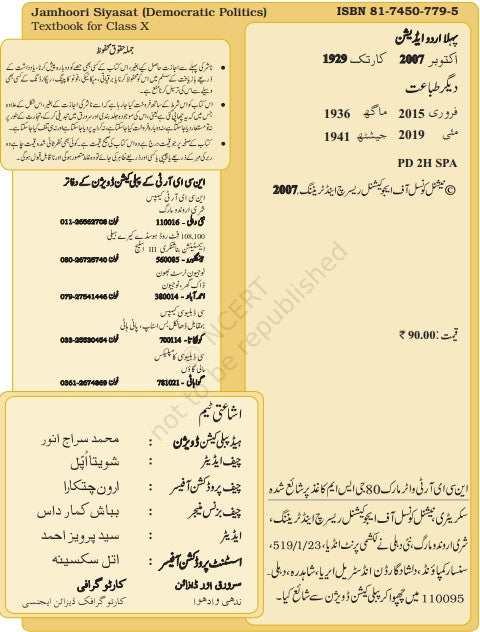 Jamhoori Siyasat (Democratic Politics)
Textbook for Class X
ISBN 81-7450-779-5
پہلا اردو ایڈیشن
اکتوبر 2007 کارتک 1929
دیگر طباعت
فروری 2015 ماگھ 1936
مئی 2019 جیشٹھ 1941
PD 2H SPA
© نیشنل کونسل آف ایجوکیشنل ریسرچ اینڈ ٹریننگ، 2007
قیمت : 90.00 ₹
این سی ای آر ٹی واٹر مارک 80 جی ایس ایم کاغذ پر شائع شدہ
سکریٹری، نیشنل کونسل آف ایجوکیشنل ریسرچ اینڈ ٹریننگ،
شری اروندو مارگ، نئی دہلی نے لکشمی پرنٹ انڈیا، 519/1/23،
سنسار کمپاؤنڈ، دلشاد گارڈن انڈسٹریل ایریا، شاہدرہ، دہلی۔
110095 میں چھپوا کر پبلی کیشن ڈویژن سے شائع کیا۔
جملہ حقوق محفوظ
ناشر کی پہلے سے اجازت حاصل کیے بغیر، اس کتاب کے کسی بھی حصے کو دوبارہ پیش کرنا، یادداشت کے
ذریعے بازیافت کے سسٹم میں اس کو محفوظ کرنا یا برقیاتی، میکانیکی، فوٹو کاپینگ، ریکارڈنگ کے کسی بھی
وسیلے سے اس کی ترسیل کرنا منع ہے۔
اس کتاب کو اس شرط کے ساتھ فروخت کیا جارہا ہے کہ اسے ناشر کی اجازت کے بغیر، اس شکل کے علاوہ
جس میں کہ یہ چھاپی گئی ہے یعنی، اس کی موجودہ جلد بندی اور سرورق میں تبدیلی کرکے، تجارت کے طور پر
نہ تو مستعار دیا جاسکتا ہے، نہ دوبارہ فروخت کیا جاسکتا ہے، نہ کرایہ پر دیا جاسکتا ہے اور نہ ہی تلف کیا جاسکتا ہے۔
کتاب کے صفحہ پر جو قیمت درج ہے وہ اس کتاب کی صحیح قیمت ہے۔ کوئی بھی نظر ثانی شدہ قیمت چاہے وہ
ربر کی مہر کے ذریعے یا چیپی یا کسی اور ذریعے ظاہر کی جائے تو وہ غلط متصور ہوگی اور ناقابل قبول ہوگی۔
این سی ای آر ٹی کے پبلی کیشن ڈویژن کے دفاتر
این سی ای آر ٹی کیمپس
شری اروندو مارگ
نئی دہلی - 110016 فون 011-26562708
108,100 فٹ روڈ ہوسڈے کیرے ہیلی
ایکسٹینشن بناشنکری III اسٹیج
بنگلورو - 560085 فون 080-26725740
نوجیون ٹرسٹ بھون
ڈاک گھر، نوجیون
احمد آباد - 380014 فون 079-27541446
سی ڈبلیو سی کیمپس
بمقابل ڈھانکل بس اسٹاپ، پانی ہاٹی
کولکاتا - 700114 فون 033-25530454
سی ڈبلیو سی کامپلیکس
مالی گاؤں
گوہاٹی - 781021 فون 0361-2674869
اشاعتی ٹیم
ہیڈ پبلی کیشن ڈویژن : محمد سراج انور
چیف ایڈیٹر : شویتا اُپّل
چیف پروڈکشن آفیسر : ارون چتکارا
چیف بزنس منیجر : بباش کمار داس
ایڈیٹر : سید پرویز احمد
اسسٹنٹ پروڈکشن آفیسر : اتل سکسینہ
سرورق اور ڈیزائن کارٹوگرافی
ندھی وادھوا کارٹوگرافک ڈیزائن ایجنسی
© NCERT
not to be republished